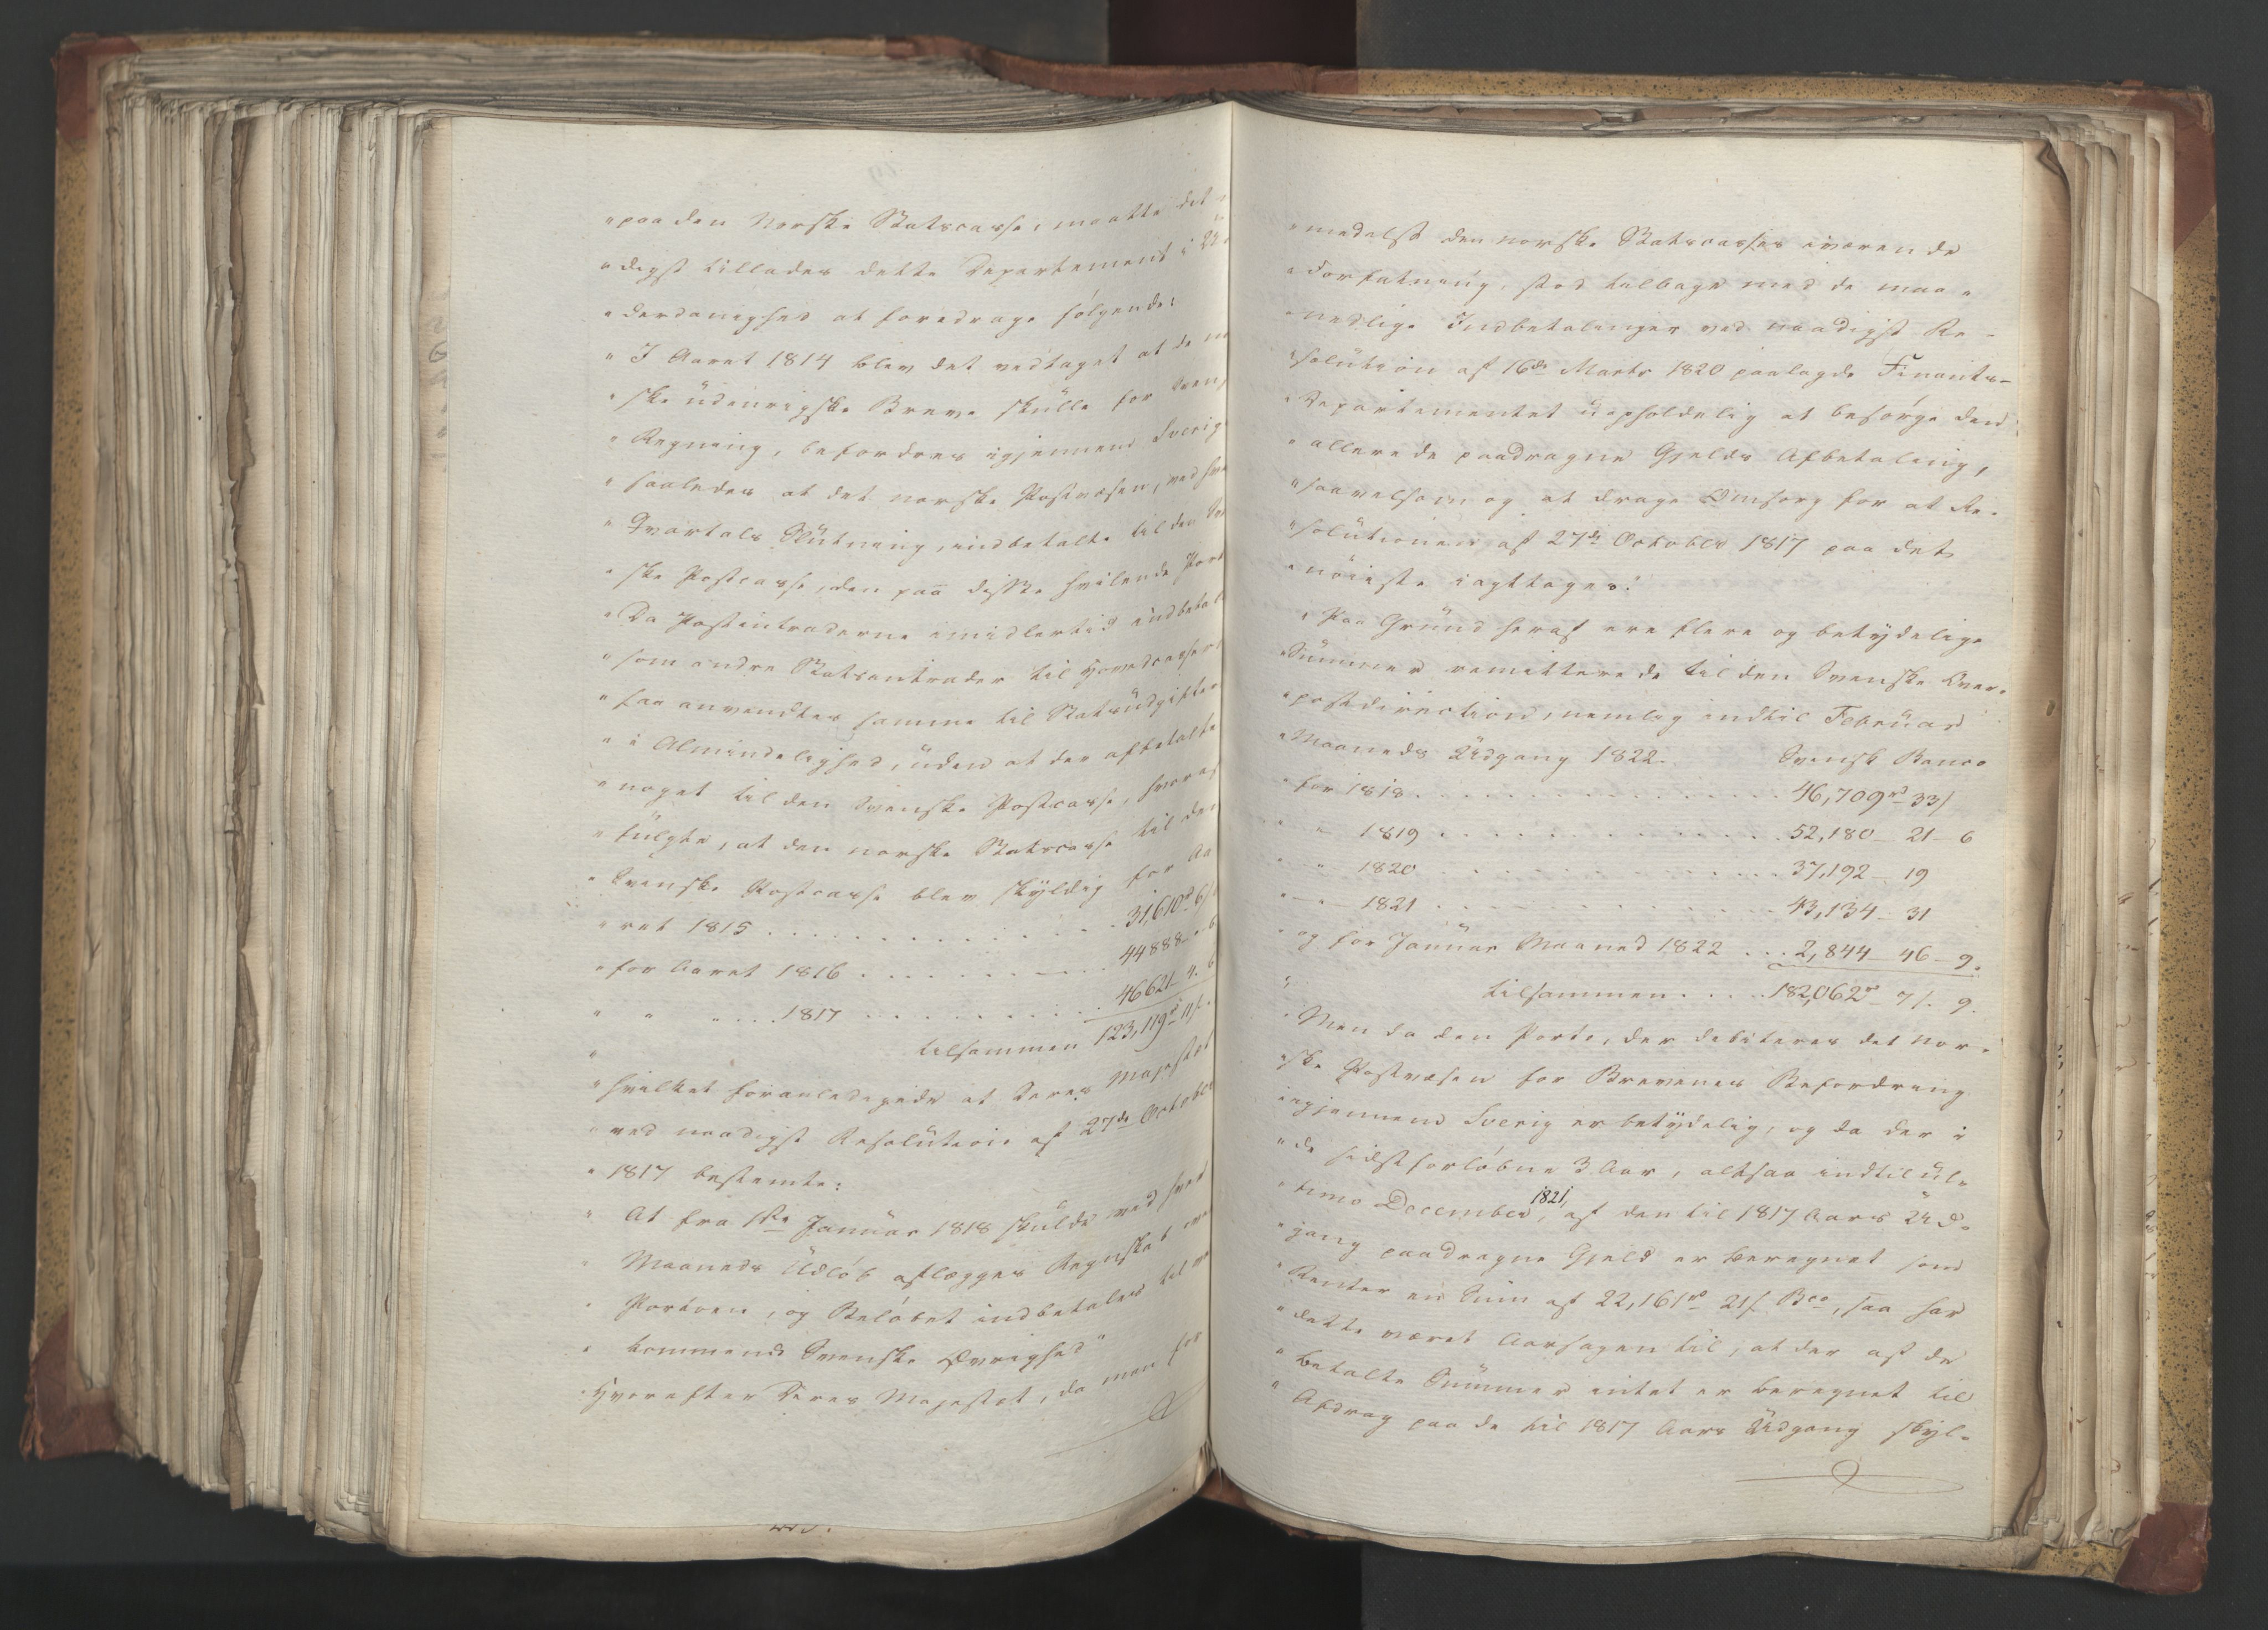 "paa den Norske Statscasse, maatte det
"digst tillades dette Departement i Un
"derdanighed at foredrage følgende:
"I Aaret 1814 blev det vedtaget at de no
"ske udenrigske Breve skulle for Svensk
"Regning, befordres igjennem Sverig
"saaledes at det norske Postvæsen, ved hve
"Qvartals Slutning, indbetalte til den Sve
"ske Postcasse, den paa disse hvilende Port
"Da Postintraderne imidlertid indbetal
"som andre Statsintrader til Hovedcassen
"saa anvendtes samme til Statsudgifter
"i Almindelighed, uden at der afbetaltes
"noget til den Svenske Postcasse, hvoraf
"fulgte, at den norske Statscasse til den
"Svenske Postcasse blev skyldig for Aa
"ret 1815 . . . . . . . . . . . 31,610rd 6/
"for Aaret 1816 . . . . . . . . . 44888 - " 6
" " " . . . 1817 . . . . . . . . . 46621 - 4. 6
" tilsammen 123,119rd 11/.
"hvilket foranledigede at Deres Majestæt
"ved naadigst Resolution af 27de October
"1817 bestemte:
" At fra 1ste Januar 1818 skulde ved hver
" Maaneds Udløb aflægges Regnskab over
" Portoen, og Beløbet indbetales til ved
" kommende Svenske Øvrighed"
"Hvorefter Deres Majestæt, da man for
"medelst den norske Statscasses iværende
"Forfatning, stod tilbage med de maa"
"nedlige Indbetalinger ved naadigst Re-
"solution af 16de Marts 1820 paalagde Finants-
"Departementet uopholdelig at besørge den
"allerede paadragne Gjelds Afbetaling,
"saavelsom og at drage Omsorg for at Re-
"solutionen af 27de October 1817 paa det
"nøieste iagttages."
"Paa Grund heraf ere flere og betydelige
"Summer remitterede til den Svenske Over-
"postdirection, nemlig indtil Februar
"Maaneds Udgang 1822. Svensk Banco
"for 1818 . . . . . . . . . . . . 46,709rd 33/
" " 1819 . . . . . . . . . . . . 52,180 - 21 - 6
" " 1820 . . . . . . . . . . . . 37,192 - 19
" " 1821 . . . . . . . . . . . . 43,134 - 31
"og for Januar Maaned 1822 . . . 2,844 - 46 - 9.
" tilsammen . . . . 182,062rd 7/. 9.
"Men da den Porto, der debiteres det Nor-
"ske Postvæsen for Brevenes Befordring
"igjennem Sverig er betydelig, og da der i
"de sidst forløbne 3 Aar, altsaa indtil ul-
"timo December 1821, af den til 1817 Aars Ud-
"gang paadragne Gjeld er beregnet som
"Renter en Sum af 22,161rd 21/ Bco, saa har
"dette været Aarsagen til, at der af de
"betalte Summer intet er beregnet til
"Afdrag paa de til 1817 Aars Udgang skyl-